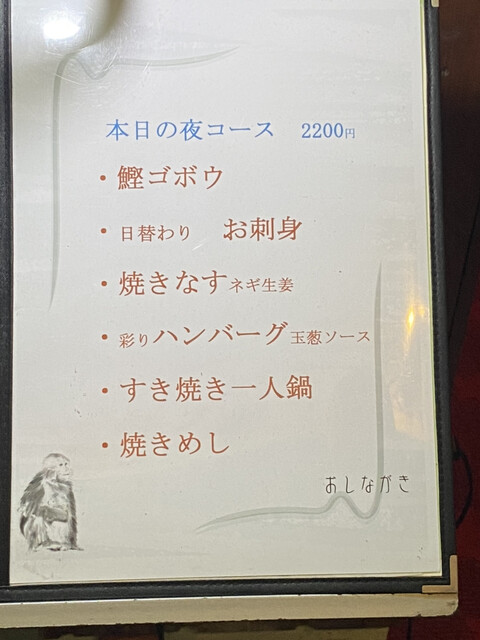 本日の夜コース 2200円
・鰹ゴボウ
・日替わり お刺身
・焼きなすネギ生姜
・彩りハンバーグ玉葱ソース
・すき焼き一人鍋
・焼きめし
おしながき